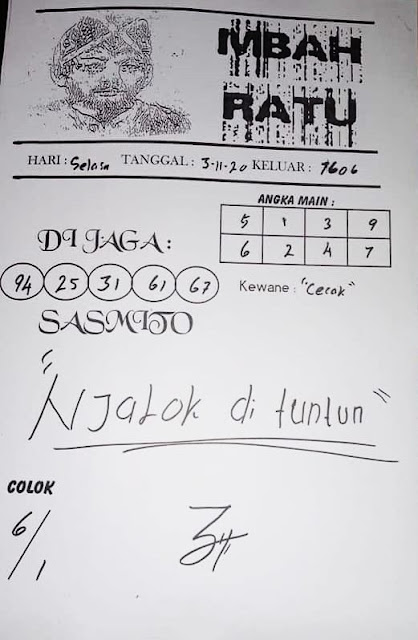 MBAH
RATU
HARI : Selasa TANGGAL : 3-11-20 KELUAR : 7606
ANGKA MAIN :
5 1 3 9
6 2 4 7
DI JAGA :
94 25 31 61 67
Kewane : "Cecak"
SASMITO
"Njalok di tuntun"
COLOK
6/1